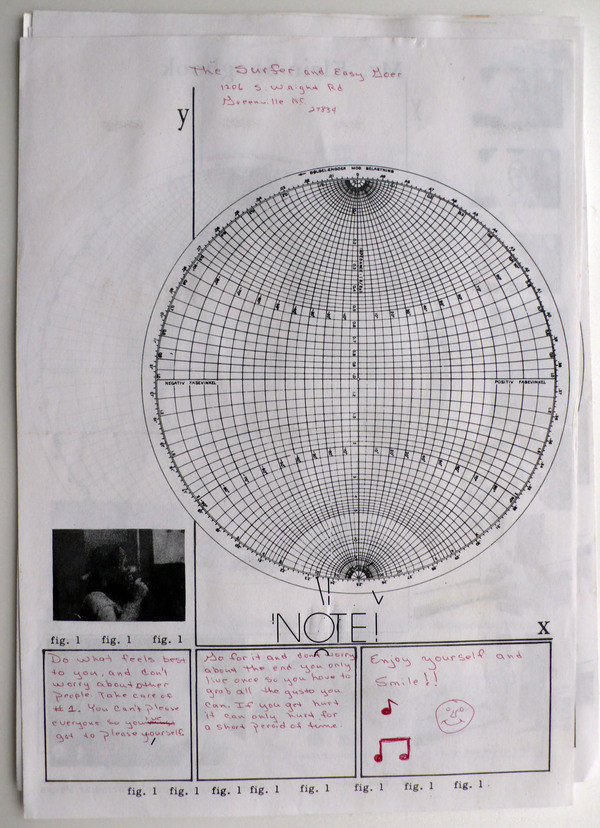 The Surfer and Easy Goer
1206 S Wright Rd
Greenville NC
27834
y
BØLGELÆNGDER MOD BELASTNING
NEGATIV FASEVINKEL
POSITIV FASEVINKEL
!NOTE!
x
fig. 1 fig. 1 fig. 1
Do what feels best
to you, and don't
worry about other
people. Take care of
#1. You can't please
everyone so you
got to please yourself.
Go for it and don't worry
about the end. You only
live once so you have to
grab all the gusto you
can. If you get hurt
it can only hurt for
a short peroid of time.
Enjoy yourself and
Smile!!
fig. 1 fig. 1 fig. 1 fig. 1 fig. 1 fig. 1 fig. 1 fig. 1